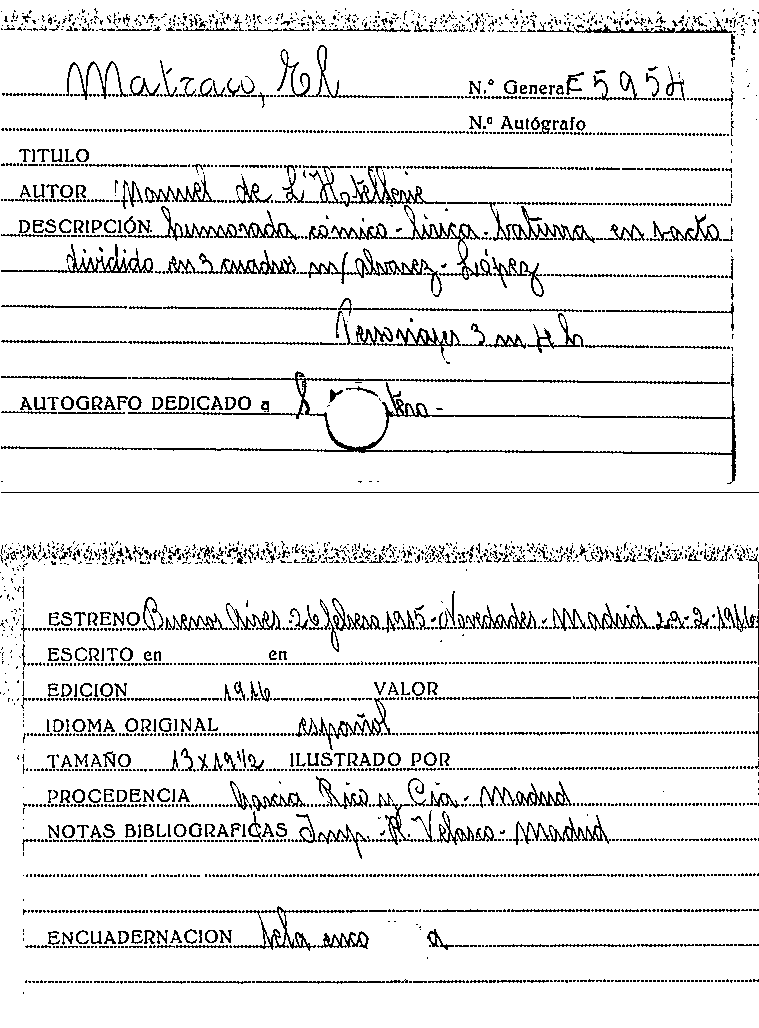 Matraco, El N.º General E 5954
N.º Autógrafo
TITULO
AUTOR Manuel de L'Hotellerie
DESCRIPCIÓN humorada cómico-lírica-baturra en 1 acto
dividido en 3 cuadros m/ Alvarez-López
Personajes 3 m 4 h
AUTOGRAFO DEDICADO a
ESTRENO Buenos Aires 26 febrero 1915-Novedades-Madrid 29-2-1916
ESCRITO en en
EDICION 1916 VALOR
IDIOMA ORIGINAL español
TAMAÑO 13x19 1/2 ILUSTRADO POR
PROCEDENCIA Garcia Rico y Cía-Madrid
NOTAS BIBLIOGRAFICAS Imp. R. Velasco-Madrid
ENCUADERNACION tela